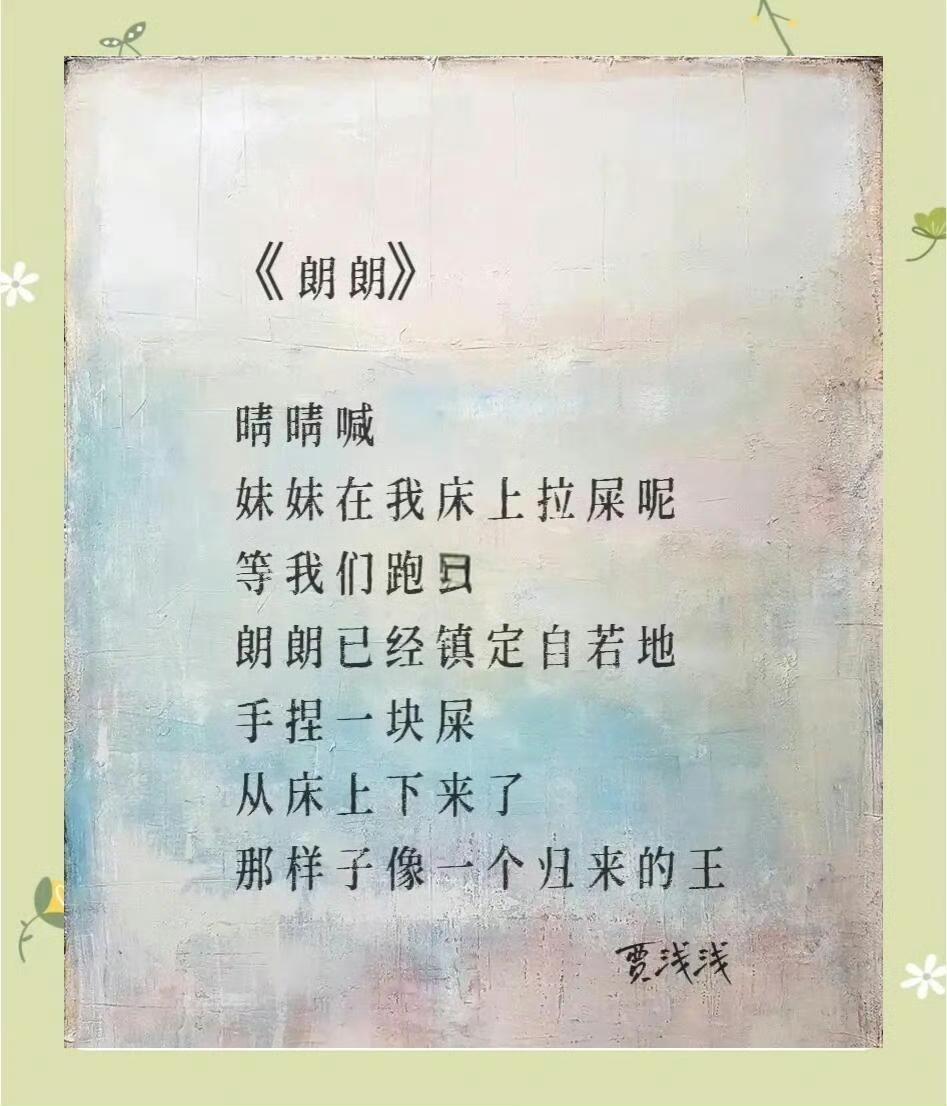 《朗朗》
晴晴喊
妹妹在我床上拉屎呢
等我们跑
朗朗已经镇定自若地
手捏一块屎
从床上下来了
那样子像一个归来的王
贾浅浅